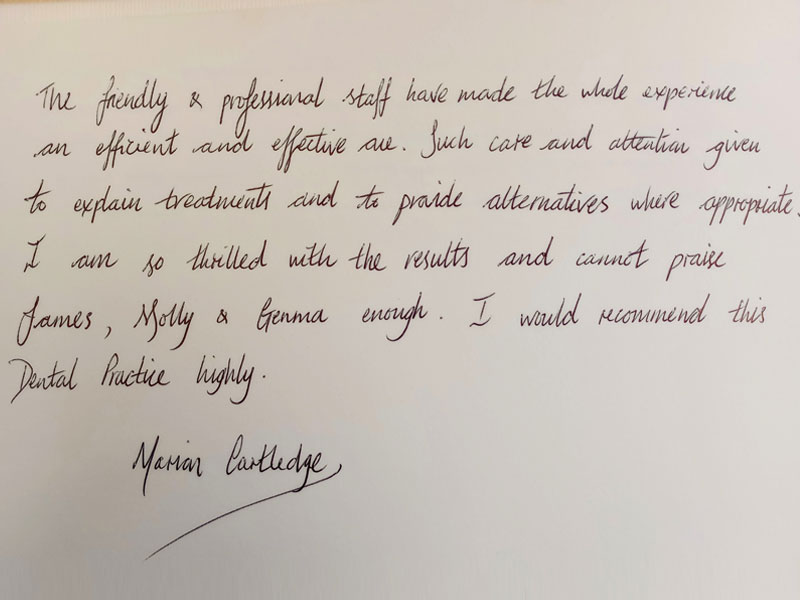 The friendly & professional staff have made the whole experience
an efficient and effective one. Such care and attention given
to explain treatments and to provide alternatives where appropriate.
I am so thrilled with the results and cannot praise
James, Molly & Gemma enough. I would recommend this
Dental Practice highly.
Marian Cartledge